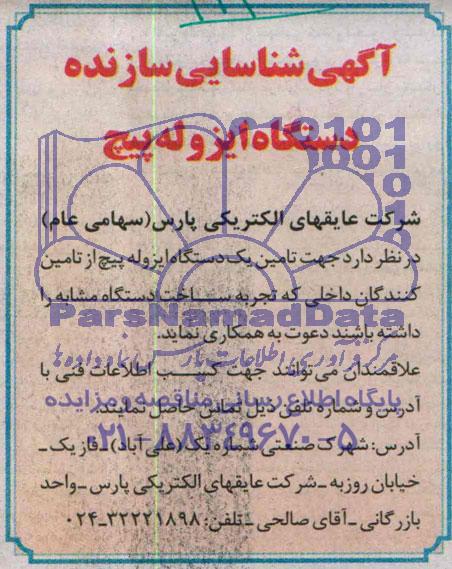 آگهی شناسایی سازنده
دستگاه ایزوله پیچ
شرکت عایقهای الکتریکی پارس (سهامی عام)
در نظر دارد جهت تامین یک دستگاه ایزوله پیچ از تامین
کنندگان داخلی که تجربه ساخت دستگاه مشابه را
ParsNamadData
داشته باشند دعوت به همکاری نماید.
مرکز فرآوری اطلاعات پارس نماد داده‌ها
علاقمندان می توانند جهت کسب اطلاعات فنی با
پایگاه اطلاع رسانی مناقصه و مزایده
آدرس و شماره تلفن ذیل تماس حاصل نمایند.
۰۲۱-۸۸۳۴۹۶۷۰-۵
آدرس: شهرک صنعتی شماره یک (علی آباد) - فاز یک -
خیابان روزبه - شرکت عایقهای الکتریکی پارس - واحد
بازرگانی - آقای صالحی - تلفن: ۳۲۲۲۱۸۹۸-۰۲۴